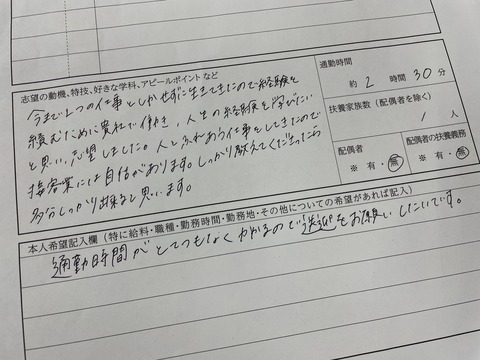 志望の動機、特技、好きな学科、アピールポイント など
今まで1つの仕事としかせずに生きてきたので経験を
積むために貴社で働き、人生の経験を学びたい
と思い、志望しました。人とふれあう仕事をしてきたので
接客業には自信があります。しっかり教えてくださったら
多分しっかり出来ると思います。
通勤時間
約 2 時間 30 分
扶養家族数（配偶者を除く）
1 人
配偶者
※ 有・無
配偶者の扶養義務
※ 有・無
本人希望記入欄（特に給料・職種・勤務時間・勤務地・その他についての希望があれば記入）
通勤時間がとてつもなくかかるので送迎をお願いしたいです。